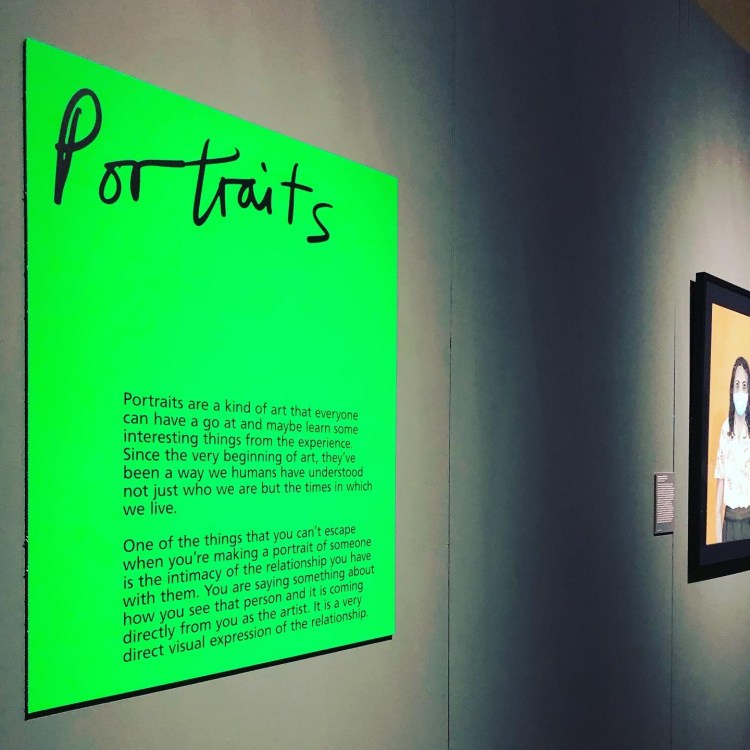 Portraits
Portraits are a kind of art that everyone
can have a go at and maybe learn some
interesting things from the experience.
Since the very beginning of art, they've
been a way we humans have understood
not just who we are but the times in which
we live.
One of the things that you can't escape
when you're making a portrait of someone
is the intimacy of the relationship you have
with them. You are saying something about
how you see that person and it is coming
directly from you as the artist. It is a very
direct visual expression of the relationship.